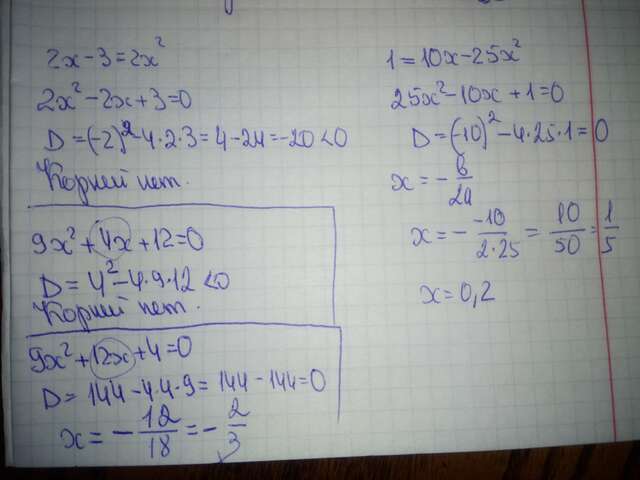 2x-3=2x²
2x²-2x+3=0
D=(-2)²-4·2·3=4-24=-20<0
Корней нет.
9x²+4x+12=0
D=4²-4·9·12<0
Корней нет.
9x²+12x+4=0
D=144-4·4·9=144-144=0
x=-12/18=-2/3
1=10x-25x²
25x²-10x+1=0
D=(-10)²-4·25·1=0
x=-в/2a
x=-(-10)/(2·25)=10/50=1/5
x=0,2